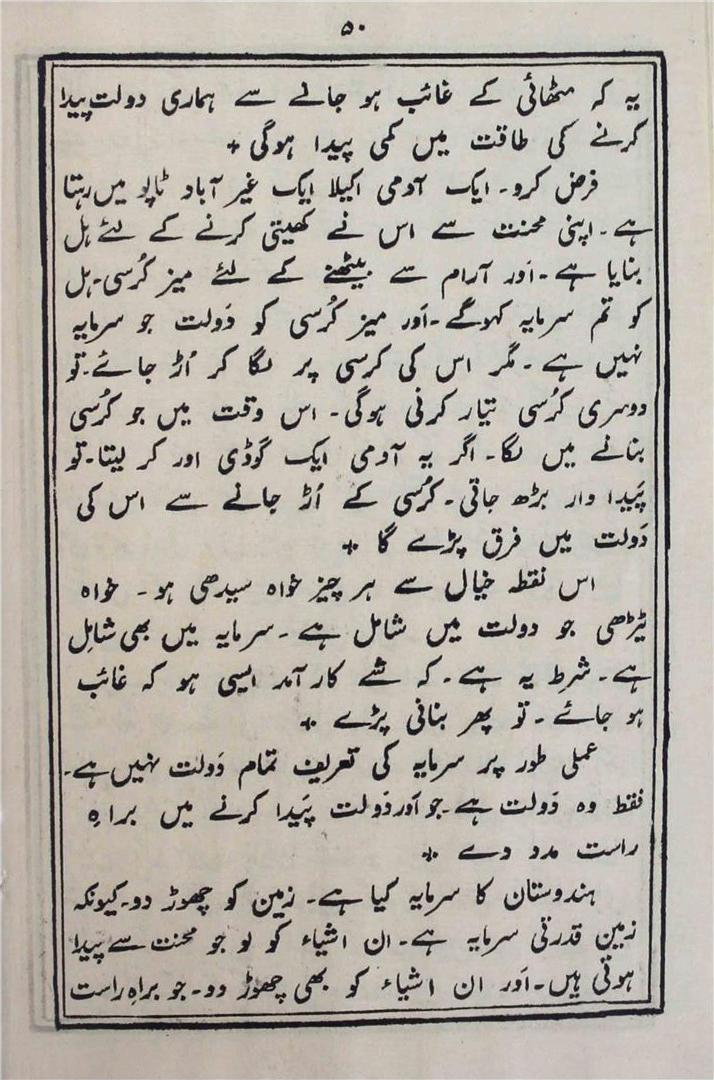 ۵۰
یہ کہ مٹھائی کے غائب ہو جانے سے ہماری دولت پیدا
کرنے کی طاقت میں کمی پیدا ہوگی +
فرض کرو۔ ایک آدمی اکیلا ایک غیر آباد ٹاپو میں رہتا
ہے۔ اپنی محنت سے اس نے کھیتی کرنے کے لئے ہل
بنایا ہے۔ اَور آرام سے بیٹھنے کے لئے میز کُرسی۔ ہل
کو تم سرمایہ کہوگے۔ اَور میز کُرسی کو دَولت جو سرمایہ
نہیں ہے۔ مگر اس کی کرسی پر لگا کر اُڑ جائے۔ تو
دوسری کُرسی تیار کرنی ہوگی۔ اس وقت میں جو کُرسی
بنانے میں لگا۔ اگر یہ آدمی ایک گوڈی اور کر لیتا۔ تو
پَیدا وار بڑھ جاتی۔ کُرسی کے اُڑ جانے سے اس کی
دَولت میں فرق پڑے گا +
اس نقطہ خیال سے ہر چیز خواہ سیدھی ہو۔ خواہ
ٹیڑھی جو دولت میں شامل ہے۔ سرمایہ میں بھی شامِل
ہے۔ شرط یہ ہے۔ کہ شے کار آمد ایسی ہو کہ غائب
ہو جائے۔ تو پھر بنانی پڑے +
عملی طور پر سرمایہ کی تعریف تمام دَولت نہیں ہے۔
فقط وہ دَولت ہے۔ جو اَور دَولت پَیدا کرنے میں براہِ
راست مدد دے +
ہندوستان کا سرمایہ کیا ہے۔ زمین کو چھوڑ دو۔ کیونکہ
زمین قدرتی سرمایہ ہے۔ ان اشیاء کو لو جو محنت سے پیدا
ہوتی ہیں۔ اَور ان اشیاء کو بھی چھوڑ دو۔ جو براہِ راست